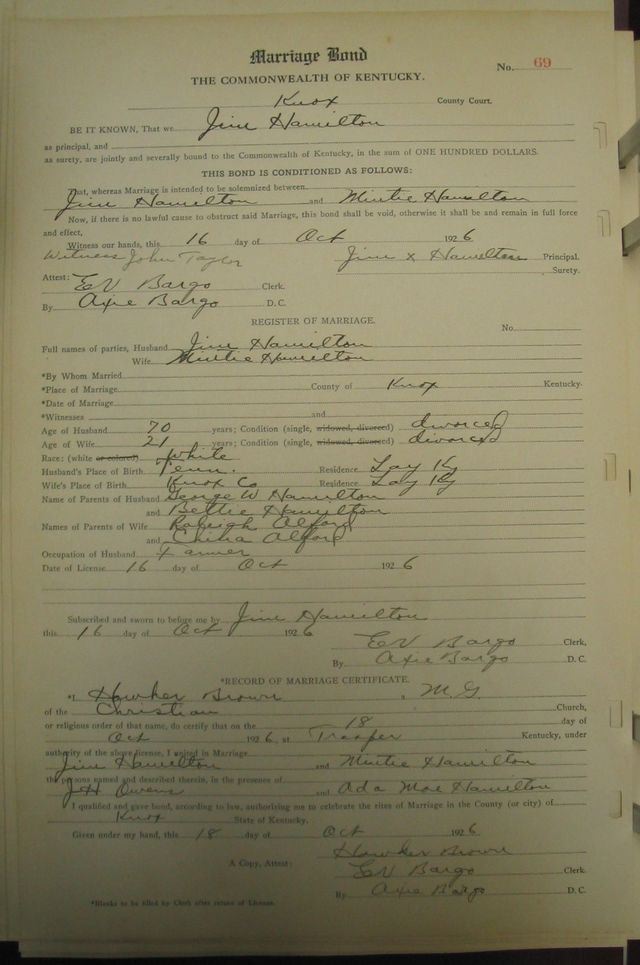 Marriage Bond
No. 69
THE COMMONWEALTH OF KENTUCKY.
Knox County Court.
BE IT KNOWN, That we Jim Hamilton
as principal, and
as surety, are jointly and severally bound to the Commonwealth of Kentucky, in the sum of ONE HUNDRED DOLLARS.
THIS BOND IS CONDITIONED AS FOLLOWS:
That, whereas Marriage is intended to be solemnized between
Jim Hamilton and Mintie Hamilton
Now, if there is no lawful cause to obstruct said Marriage, this bond shall be void, otherwise it shall be and remain in full force
and effect,
Witness our hands, this 16 day of Oct 1926
Witness John Taylor Jim x Hamilton Principal.
Surety.
Attest: EV Bargo Clerk.
By Axie Bargo D.C.
REGISTER OF MARRIAGE.
No.
Full names of parties, Husband Jim Hamilton
Wife Mintie Hamilton
*By Whom Married
*Place of Marriage County of Knox Kentucky.
*Date of Marriage
*Witnesses and
Age of Husband 70 years; Condition (single, widowed, divorced) divorced
Age of Wife 21 years; Condition (single, widowed, divorced) divorced
Race: (white or colored) white
Husband's Place of Birth Tenn. Residence Lay Ky
Wife's Place of Birth Knox Co Residence Lay Ky
Name of Parents of Husband George W Hamilton
and Bettie Hamilton
Names of Parents of Wife Raleigh Alford
and China Alford
Occupation of Husband Farmer
Date of License 16 day of Oct 1926
Subscribed and sworn to before me by Jim Hamilton
this 16 day of Oct 1926
EV Bargo Clerk,
By Axie Bargo D.C.
*RECORD OF MARRIAGE CERTIFICATE.
*I Hawker Brown a M.G.
of the Christian Church,
or religious order of that name, do certify that on the 18 day of
Oct 1926 at Trosper Kentucky, under
authority of the above license, I united in Marriage
Jim Hamilton and Mintie Hamilton
the persons named and described therein, in the presence of
J H Owens and Ada Mae Hamilton
I qualified and gave bond, according to law, authorizing me to celebrate the rites of Marriage in the County (or city) of
Knox State of Kentucky.
Given under my hand, this 18 day of Oct 1926
Hawker Brown
A Copy, Attest: EV Bargo Clerk.
By Axie Bargo D.C.
*Blanks to be filled by Clerk after return of License.